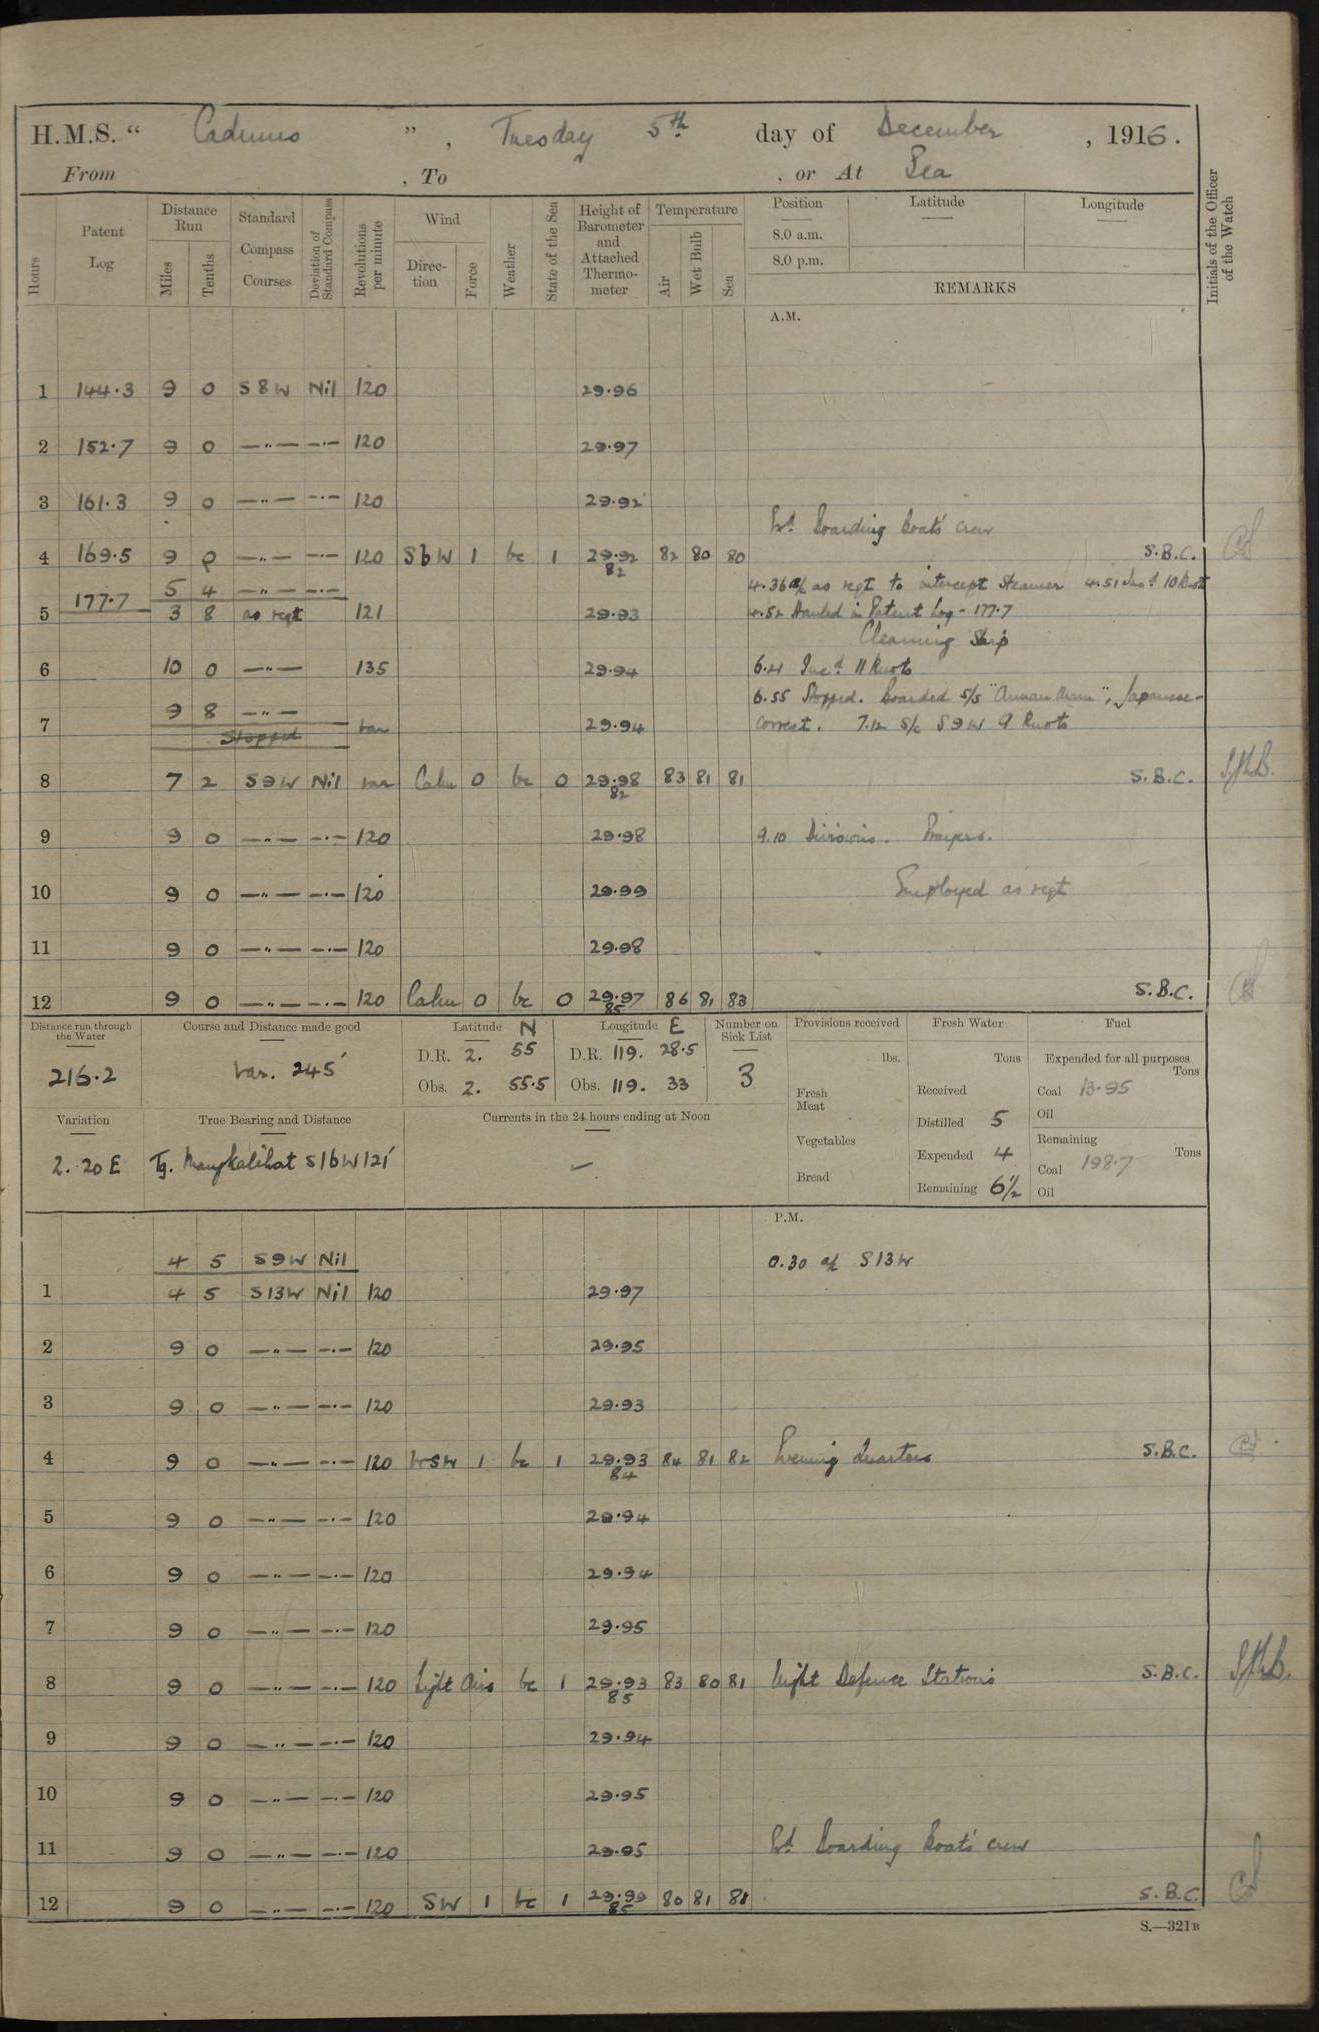 H.M.S. “ Cadmus ” , Tuesday 5th day of December , 1916.
From , To , or At Sea
Hours
Patent Log
Distance Run
Miles
Tenths
Standard Compass Courses
Deviation of Standard Compass
Revolutions per minute
Wind
Direction
Force
Weather
State of the Sea
Height of Barometer and Attached Thermometer
Temperature
Air
Wet Bulb
Sea
Position Latitude Longitude
8.0 a.m.
8.0 p.m.
REMARKS
Initials of the Officer of the Watch
A.M.
1 144.3 9 0 S8W Nil 120 29.96
2 152.7 9 0 —„— —.— 120 29.97
3 161.3 9 0 —„— —.— 120 29.92
Boarding Boat's crew
4 169.5 9 0 —„— —.— 120 SbW 1 bc 1 29.92 82 80 80 S.B.C.
82
5 4 —„— —.— 4.36 a/c as reqt to intercept Steamer 4.51 Incd 10 Knots
5 177.7 3 8 as reqt 121 29.93 4.52 Hauled in Patent Log - 177.7
Cleaning Ship
6 10 0 —„— 135 29.94 6.21 Incd 11 Knots
9 8 —„— 6.55 Stopped. Boarded S/S " ", Japanese-
7 Stopped var 29.94 correct. 7.12 S/c S9W 9 Knots
8 7 2 S9W Nil var Calm 0 bc 0 29.98 83 81 81 S.B.C.
82
9 9 0 —„— —.— 120 29.98 9.10 Divisions. Prayers.
10 9 0 —„— —.— 120 29.99 Employed as reqt
11 9 0 —„— —.— 120 29.98
12 9 0 —„— —.— 120 Calm 0 bc 0 29.97 86 81 83 S.B.C.
85
Distance run through the Water
216.2
Course and Distance made good
Var. 245'
Latitude N
D.R. 2. 55
Obs. 2. 55.5
Longitude E
D.R. 119. 28.5
Obs. 119. 33
Number on Sick List
3
Provisions received
lbs.
Fresh Meat
Vegetables
Bread
Fresh Water
Tons
Received
Distilled 5
Expended 4
Remaining 61½
Fuel
Expended for all purposes
Tons
Coal 13.95
Oil
Remaining
Tons
Coal 198.7
Oil
Variation
2. 20 E
True Bearing and Distance
Tg. Mangkalihat S16W 121'
Currents in the 24 hours ending at Noon
P.M.
4 5 S9W Nil 0.30 a/c S13W
1 4 5 S13W Nil 120 29.97
2 9 0 —„— —.— 120 29.95
3 9 0 —„— —.— 120 29.93
4 9 0 —„— —.— 120 WSW 1 bc 1 29.93 84 81 82 Evening Quarters S.B.C.
84
5 9 0 —„— —.— 120 29.94
6 9 0 —„— —.— 120 29.94
7 9 0 —„— —.— 120 29.95
8 9 0 —„— —.— 120 Light Airs bc 1 29.93 83 80 81 Night Defence Stations S.B.C.
85
9 9 0 —„— —.— 120 29.94
10 9 0 —„— —.— 120 29.95
11 9 0 —„— —.— 120 29.95 Boarding Boat's crew
12 9 0 —„— —.— 120 SW 1 bc 1 80 81 81 S.B.C.
S.—321B